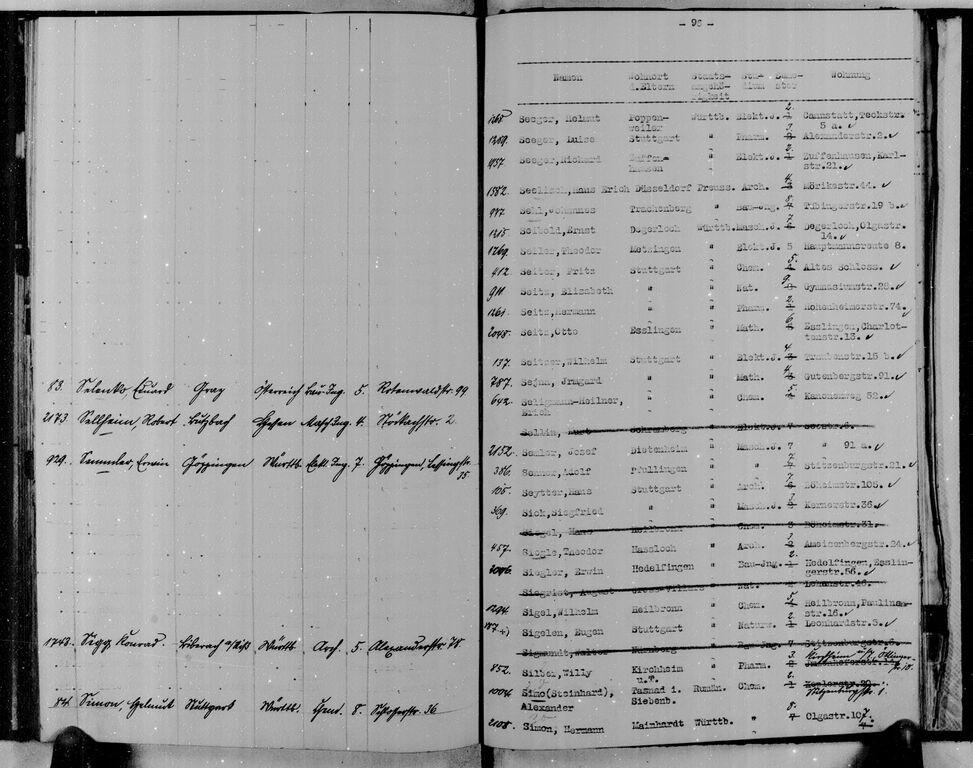 83. Selenko, Eduard Graz Österreich Bau-Ing. 5. Rotenwaldstr. 99
2173. Sellheim, Robert Butzbach Hessen Masch. Ing. 4. Stöckachstr. 2
929. Semmler, Erwin Göppingen Württb. Elekt. Ing. 7. Göppingen, Lessingstr.
35.
1743. Sigg Konrad, Biberach a/Riß Württb. Arch. 5. Alexanderstr. 78
84. Simon, Helmut Stuttgart Württb. Gend. 8. Schloßstr. 36
Namen Wohnort Staats- Stu- Semes- Wohnung
d.Eltern angehö- dium ster
rigkeit
2.
1265 Seeger, Helmut Poppen- Württb. Elekt.J. 1 Cannstatt,Teckstr.
weiler 3. 5 a.
1269. Seeger, Luise Stuttgart " Pharm. 2 Alexanderstr.2.
2.
1037 Seeger,Richard Zuffen- " Elekt.J. 1 Zuffenhausen,Karl-
hausen str.21.
4.
1582. Seelisch,Hans Erich Düsseldorf Preuss. Arch. 3 Mörikestr.44.
8.
977. Sehl,Johannes Trachenberg " Bau-Jng. 7 Tübingerstr.19 b.
7.
1215. Seibold,Ernst Degerloch Württb. Masch.J. Degerloch,Olgastr.
14.
1269. Seiler,Theodor Metzingen " Elekt.J. 5 Hauptmannsreute 8.
5.
412 Seiter, Fritz Stuttgart " Chem. 4 Altes Schloss.
9.
911 Seitz, Elisabeth " " Nat. 8 Gymnasiumstr.28.
2.
1261. Seitz,Hermann " " Pharm. 1 Hohenheimerstr.74.
6.
2048. Seitz,Otto Esslingen " Math. 5 Esslingen,Charlot-
tenstr.13.
4.
137. Seitzer,Wilhelm Stuttgart " Elekt.J. 3 Traubenstr.15 b.
4.
787. Sejna, Irmgard " " Math. Gutenbergstr.91.
5.
642. Seligmann-Heilner, " " Chem. Kanonenweg 52.
Erich
Sellin, Kurt Schramberg " Elekt.J. 7 Seestr.6.
2152. Semler, Josef Dietenheim " Masch.J. 7 " 91 a.
7
386. Senner,Adolf Pfullingen " " Stitzenburgstr.21.
7
105. Seytter,Hans Stuttgart " Arch. 6 Böheimstr.105.
369. Sick,Siegfried " " Masch.J. Kernerstr.36
Siegel, Hans Heilbronn " Chem. 3 Böheimstr.31.
457. Siegle,Theodor Hassloch " Arch. Ameisenbergstr.24.
2.
2096. Siegler, Erwin Hedelfingen " Bau-Jng. 1 Hedelfingen,Esslin-
gerstr.56.
Siegrist, August " Nat.
5.
1294. Sigel,Wilhelm Heilbronn " Chem. Heilbronn,Paulinen-
2. str.16.
187 Sigelen, Eugen Stuttgart " Naturw. 1 Leonhardstr.5.
Sigmundt,Walter Nürnberg
3.
852. Silber, Willy Kirchheim " Pharm. 2
u.T. 2.
1004. Simo(Steinhard), Tasnad i. Rumän. Chem. 1 Keplerstr.20.
Alexander Siebenb. Stitzenburgstr. 1.
8.
2108. Simon, Hermann Mainhardt Württb. " 7 Olgastr.107.